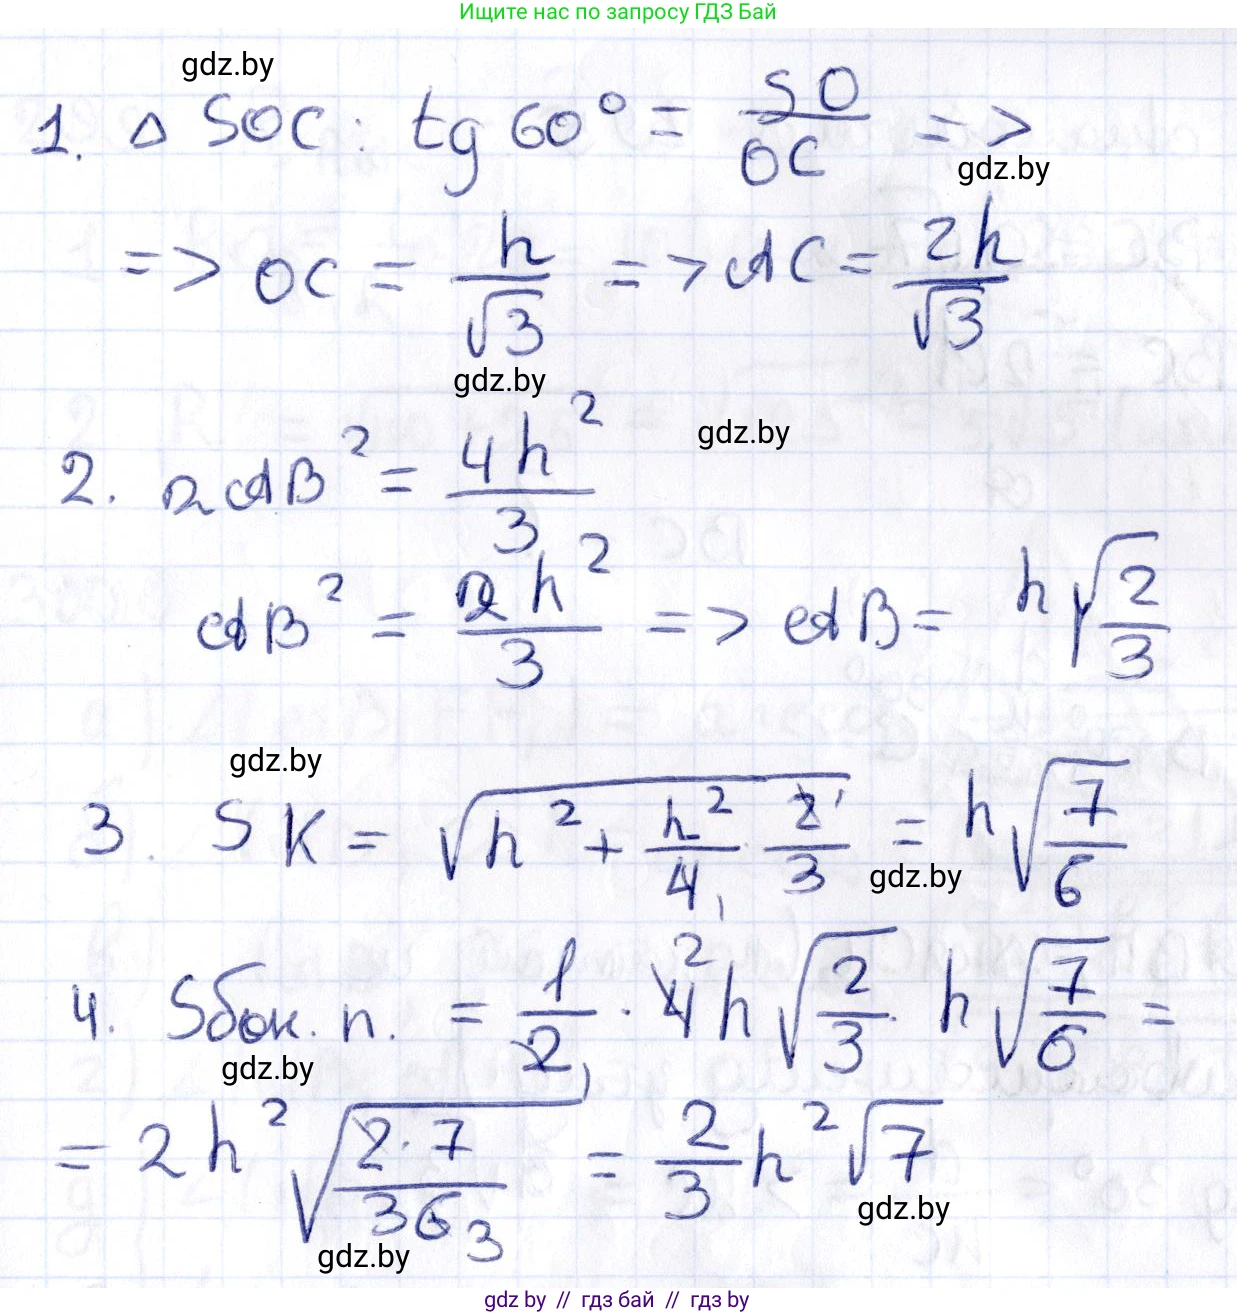 Ищите нас по запросу ГДЗ Бай
gdz.by
1. △ SOC: tg 60° = SO/OC =>
gdz.by
=> OC = h/√3 => AC = 2h/√3
gdz.by
gdz.by
2. 2AB² = 4h²/3
AB² = 2h²/3 => AB = h√(2/3)
gdz.by
3. SK = √(h² + h²/4 · 2/3) = h√(7/6)
gdz.by
4. Sбок. п. = 1/2 · 4h√(2/3) · h√(7/6) =
gdz.by
= 2h²√(2·7/(3·6)) = 2/3 h²√7
gdz.by
gdz.by
gdz by // гдз бай // gdz by